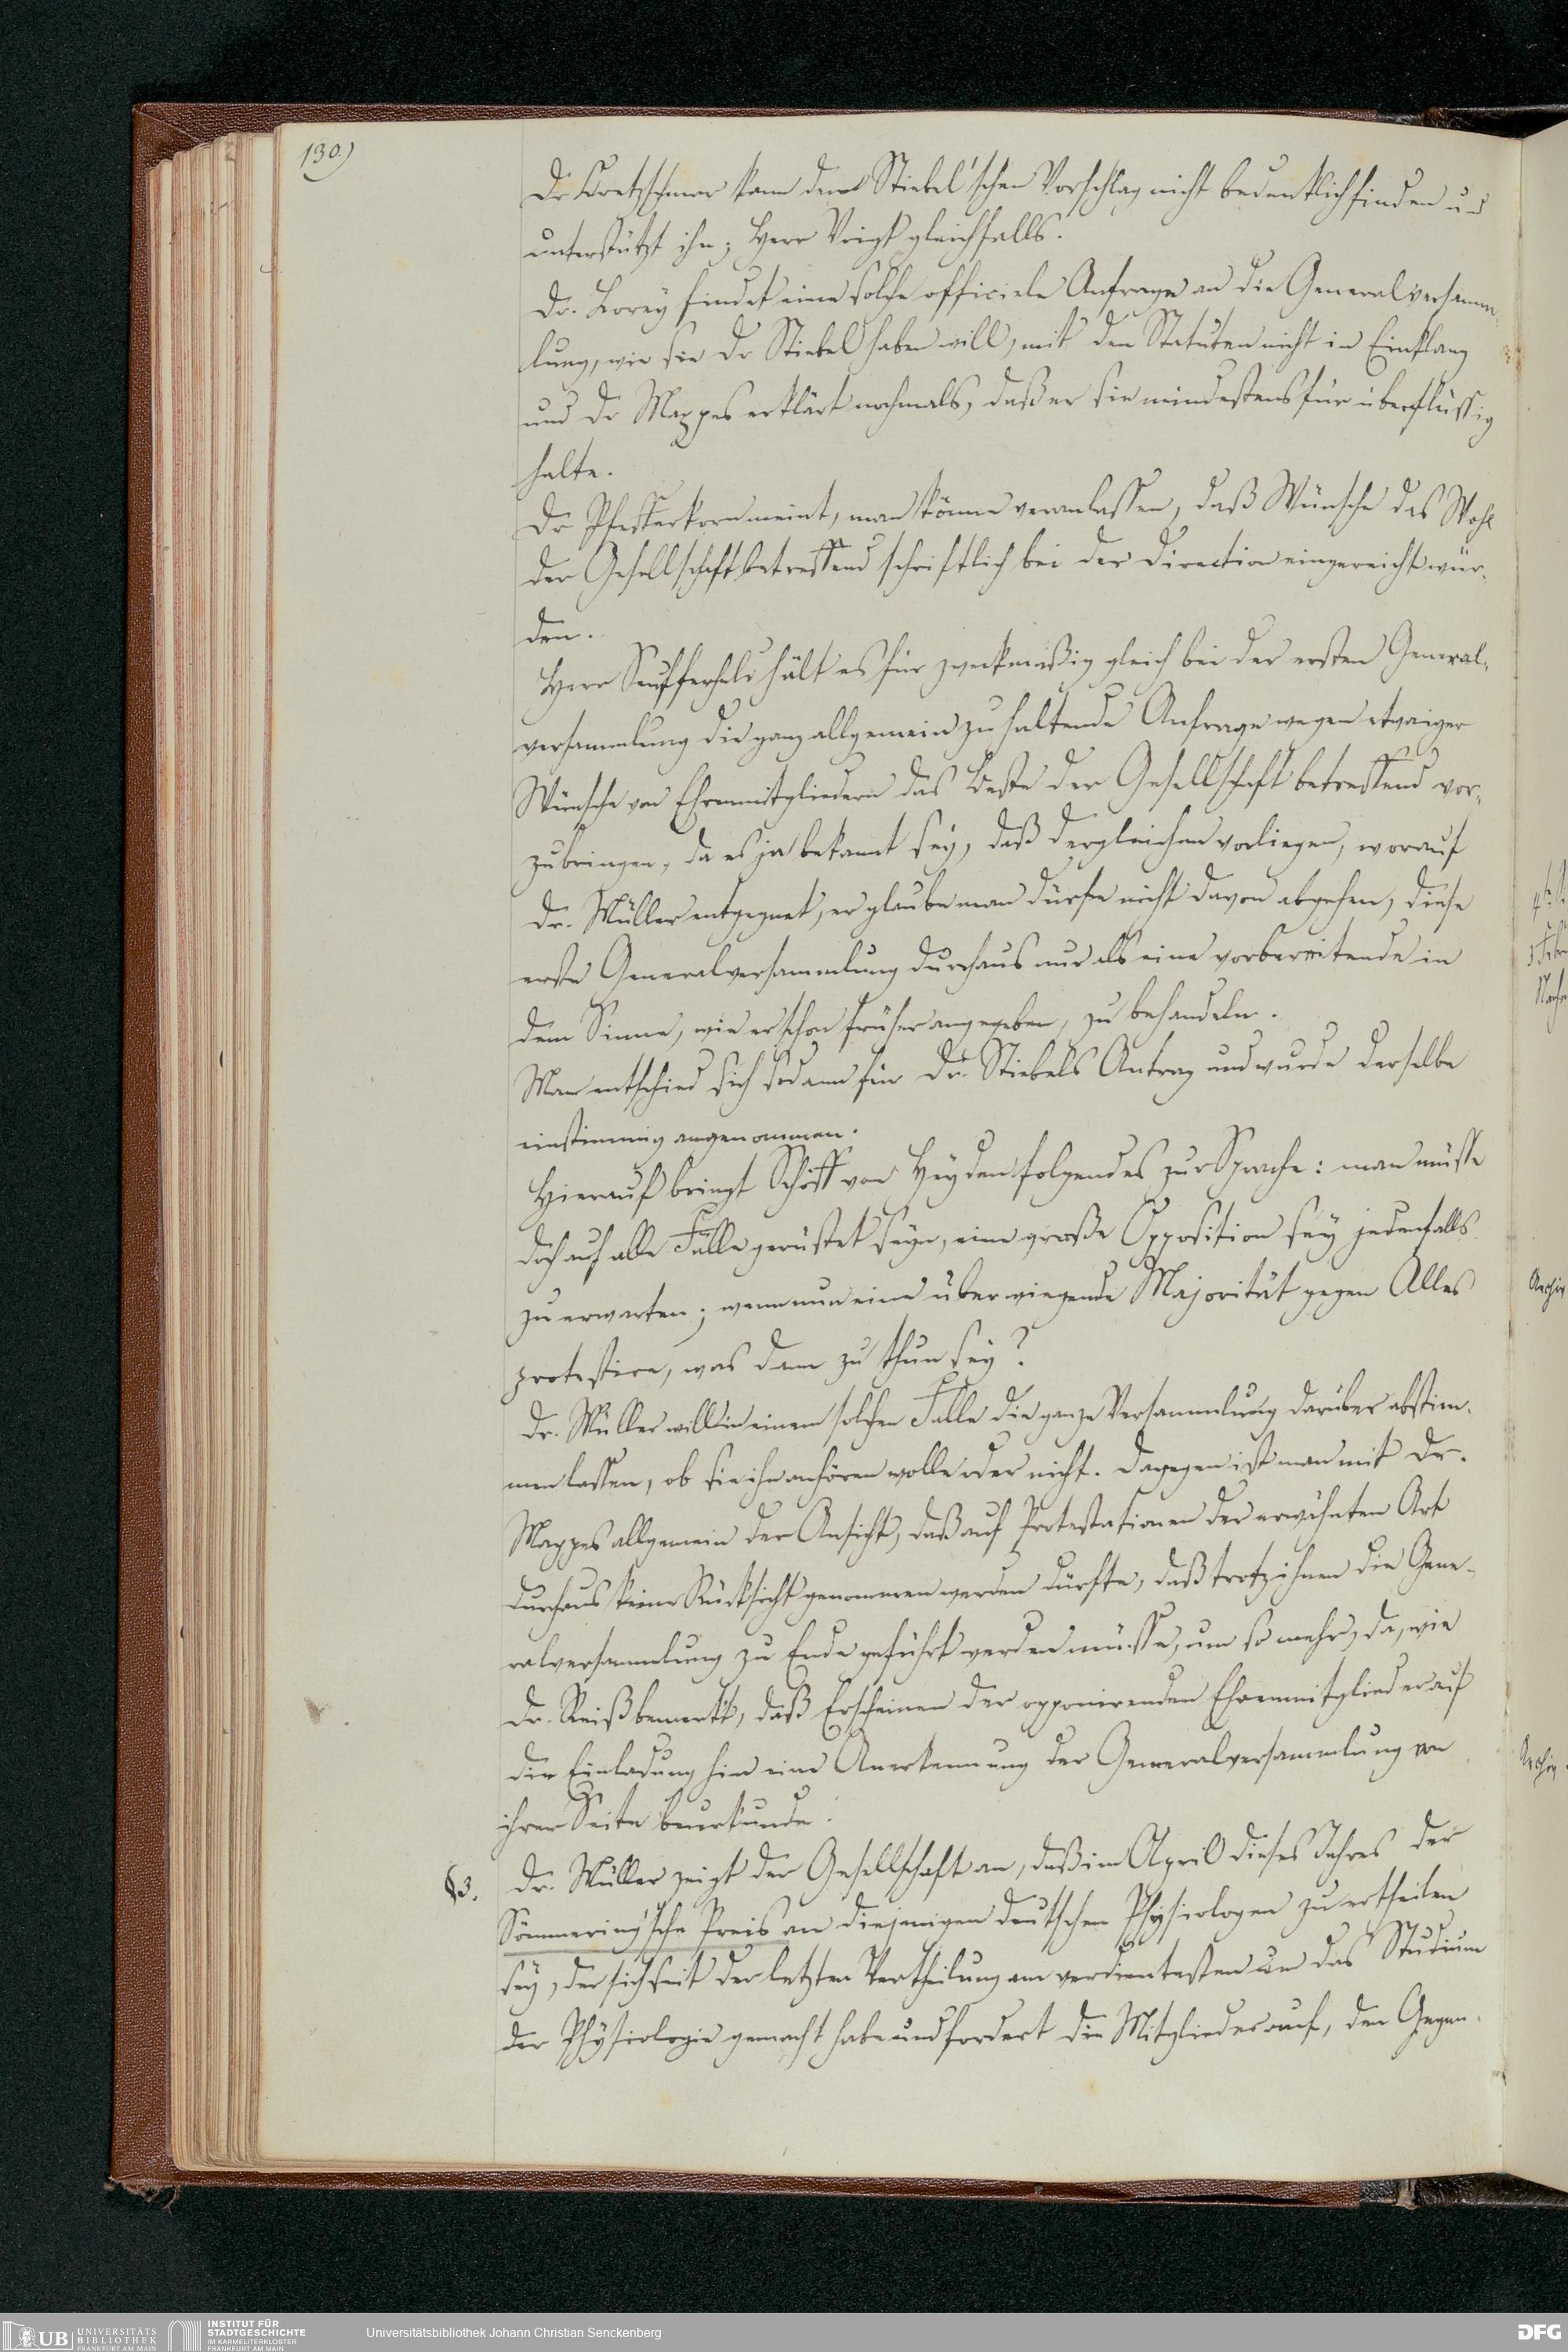 130.)
Dr Cretzschmar kann den Stiebel'schen Vorschlag nicht bedenklich finden und
unterstützt ihn; Herr Voigt gleichfalls.
Dr. Lorey findet eine solche officiele Anfrage an die Generalversamm-
lung, wie sie Dr Stiebel haben will, mit den Statuten nicht in Einklang
und Dr Mappes erklärt nochmals, daß er sie mindestens für überflüssig
halte.
Dr Pfefferkorn meint, man könne veranlassen, daß Wünsche das Wohl
der Gesellschaft betreffend schriftlich bei der Direction eingereicht wür-
den.
Herr Seufferheld hält es für zweckmäßig gleich bei der ersten General-
versammlung die ganz allgemein zu haltende Anfrage wegen etwaiger
Wünsche von Ehrenmitgliedern das Beste der Gesellschaft betreffend vor-
zubringen, da es ja bekannt sey, daß dergleichen vorliegen, worauf
Dr. Müller entgegnet, er glaube man dürfe nicht davon abgehen, diese
erste Generalversammlung durchaus nur als eine vorbereitende in
dem Sinne, wie er schon früher angegeben, zu behandeln.
Man entschied sich sodann für Dr. Stiebels Antrag und wurde derselbe
einstimmig angenommen.
Hierauf bringt Schöff von Heyden folgendes zur Sprache: man müsse
doch auf alle Fälle gerüstet seyn, eine große Opposition sey jedenfalls
zu erwarten; wenn nun eine überwiegende Majorität gegen Alles
protestire, was dann zu thun sey?
Dr. Müller will in einem solchen Falle die ganze Versammlung darüber abstim-
men lassen, ob sie ihn anhören wolle oder nicht. Dagegen ist man mit Dr.
Mappes allgemein der Ansicht, daß auf Protestationen der erwähnten Art
durchaus keine Rücksicht genommen werden dürfte, daß trotz ihnen die Gene-
ralversammlung zu Ende geführt werden müsse, um so mehr, da, wie
Dr. Reiß bemerkt, daß Erscheinen der opponirenden Ehrenmitglieder auf
die Einladung hin eine Anerkennung der Generalversammlung von
ihrer Seite beurkunde.
§3. Dr. Müller zeigt der Gesellschaft an, daß im April dieses Jahres der
Sömmering'sche Preis an diejenigen deutschen Physiologen zu ertheilen
sey, der sich seit der letzten Vertheilung am verdientesten um das Studium
der Physiologie gemacht habe und fordert die Mitglieder auf, den Gegen-
UB UNIVERSITÄTS BIBLIOTHEK FRANKFURT AM MAIN
INSTITUT FÜR STADTGESCHICHTE IM KARMELITERKLOSTER FRANKFURT AM MAIN
Universitätsbibliothek Johann Christian Senckenberg
DFG